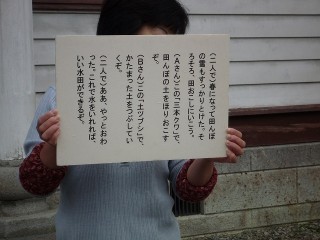 (二人で)春になって田んぼ
の雪もすっかりとけた。そ
ろそろ、田おこしにいこう。
(Aさん)この「三本クワ」で、
田んぼの土をほりおこす
ぞ。
(Bさん)この「土ツブシ」で、
かたまった土をつぶしてい
くぞ。
(二人で)ああ、やっとおわ
った。これで水をいれれば、
いい水田ができるぞ。